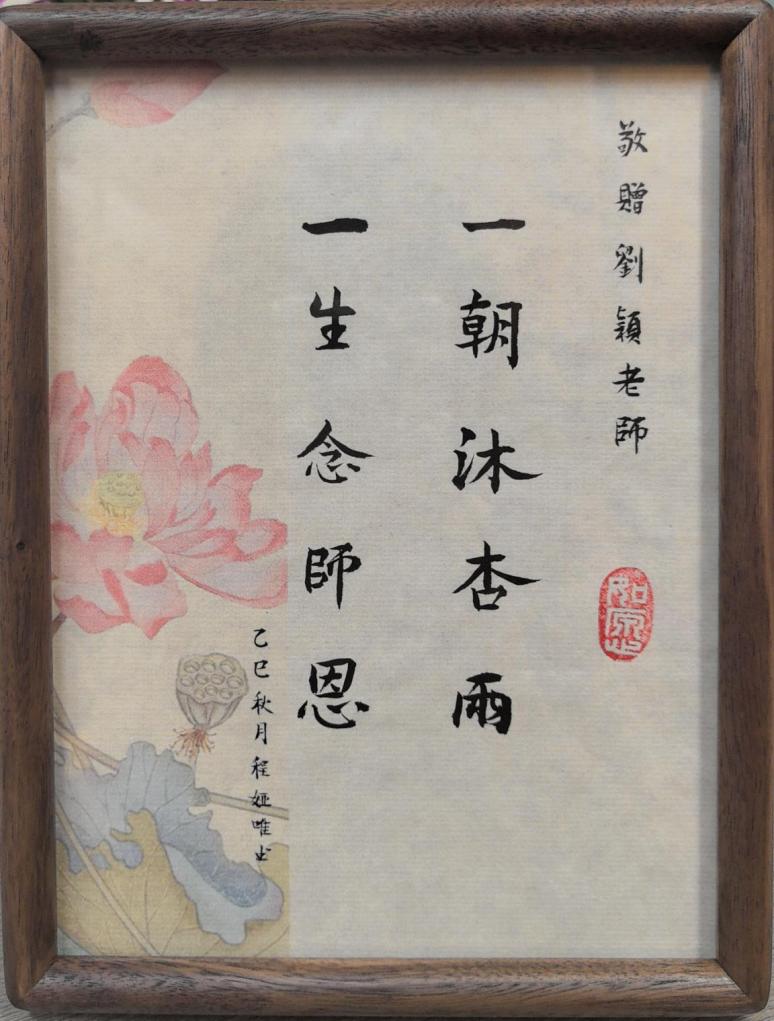 敬贈劉穎老師
一朝沐杏雨
一生念師恩
乙巳秋月程娅唯书